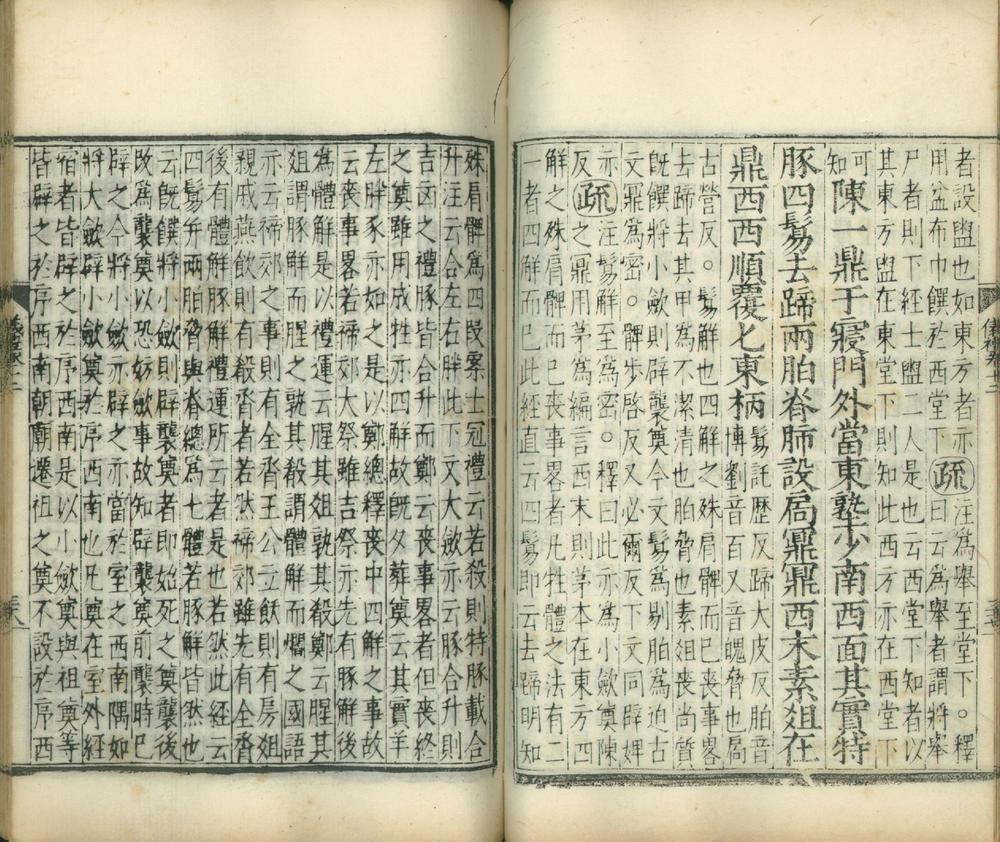 者設盥也如東方者亦疏注為舉至堂下。釋
用盆布巾饌於西堂下曰云為舉者謂將舉
尸者則下經士盥二人是也云西堂下知者以
其東方盥在東堂下則知此西方亦在西堂下
可知陳一鼎于寢門外當東塾少南西面其實特
豚四鬄去蹄兩胉脊肺設扃鼏鼏西末素俎在
鼎西西順覆匕東柄鬄託歷反蹄大皮反胉音
博劉音百又音魄脅也扃
古營反。鬄解也四解之殊肩髀而已喪事畧
去蹄去其甲為不潔清也胉脅也素俎喪尚質
旣饌將小斂則辟襲奠今文鬄為剔胉為迫古
文鼏為密。髀步啓反又必爾反下文同辟婢
亦疏注鬄解至為密。釋曰此亦為小斂奠陳
反之鼏用茅為編言西末則茅本在東方四
解之殊肩髀而巳喪事畧者凡牲體之法有二
一者四解而巳此經直云四鬄即云去蹄明知
殊肩髀爲四段案士冠禮云若殺則特豚載合
升注云合左右胖此下文大斂亦云豚合升則
吉凶之禮豚皆合升而鄭云喪事畧者但喪終
之奠雖用成牲亦四解故旣夕葬奠云其實羊
左胖豕亦如之是以鄭總釋喪中四解之事故
云喪事畧若禘郊大祭雖吉祭亦先有豚解後
為體解是以禮運云腥其俎孰其殽鄭云腥其
俎謂豚解而腥之孰其殽謂體解而爓之國語
亦云禘郊之事則有全脀王公立飫則有房俎
親戚燕飲則有殽脀者若然禘郊雖先有全脀
後有體解豚解禮運所云者是也若然此經云
四鬄并兩胉脊與脊總爲七體若豚解皆然也
云旣饌將小斂則辟襲奠者即始死之奠襲後
改為襲奠以恐妨斂事故知辟襲奠前襲時巳
辟之今將小斂亦辟之亦當於室之西南隅如
將大斂辟小斂奠於序西南也凡奠在室外經
宿者皆辟之於序西南是以小斂奠與祖奠等
皆辟之於序西南朝廟遷祖之奠不設於序西